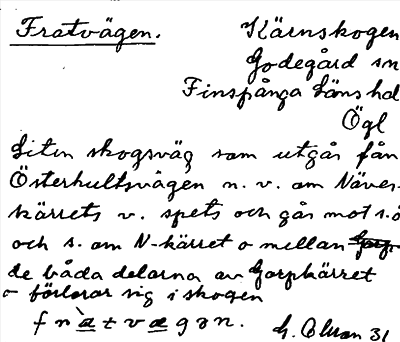 Fratvägen.
Kärnskogen
Godegård sn
Finspånga läns hd
Ögl
Liten skogsväg som utgår från
Österhultsvägen n. v. om Näver-
kärrets v. spets och går mot s.ö
och s. om N-kärret o mellan
de båda delarna av Gorpkärret
o förlorar sig i skogen
fratvægən.
31